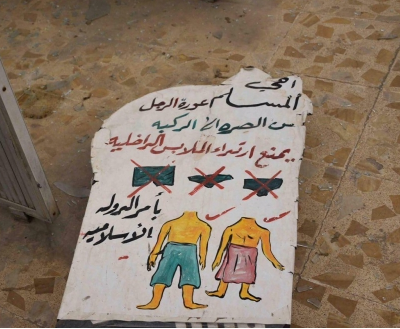 اخي
المسلم عورة الرجل
من الصره الى الركبه
يمنع ارتداء الملابس الداخليه
بأمر الدوله
الاسلاميه